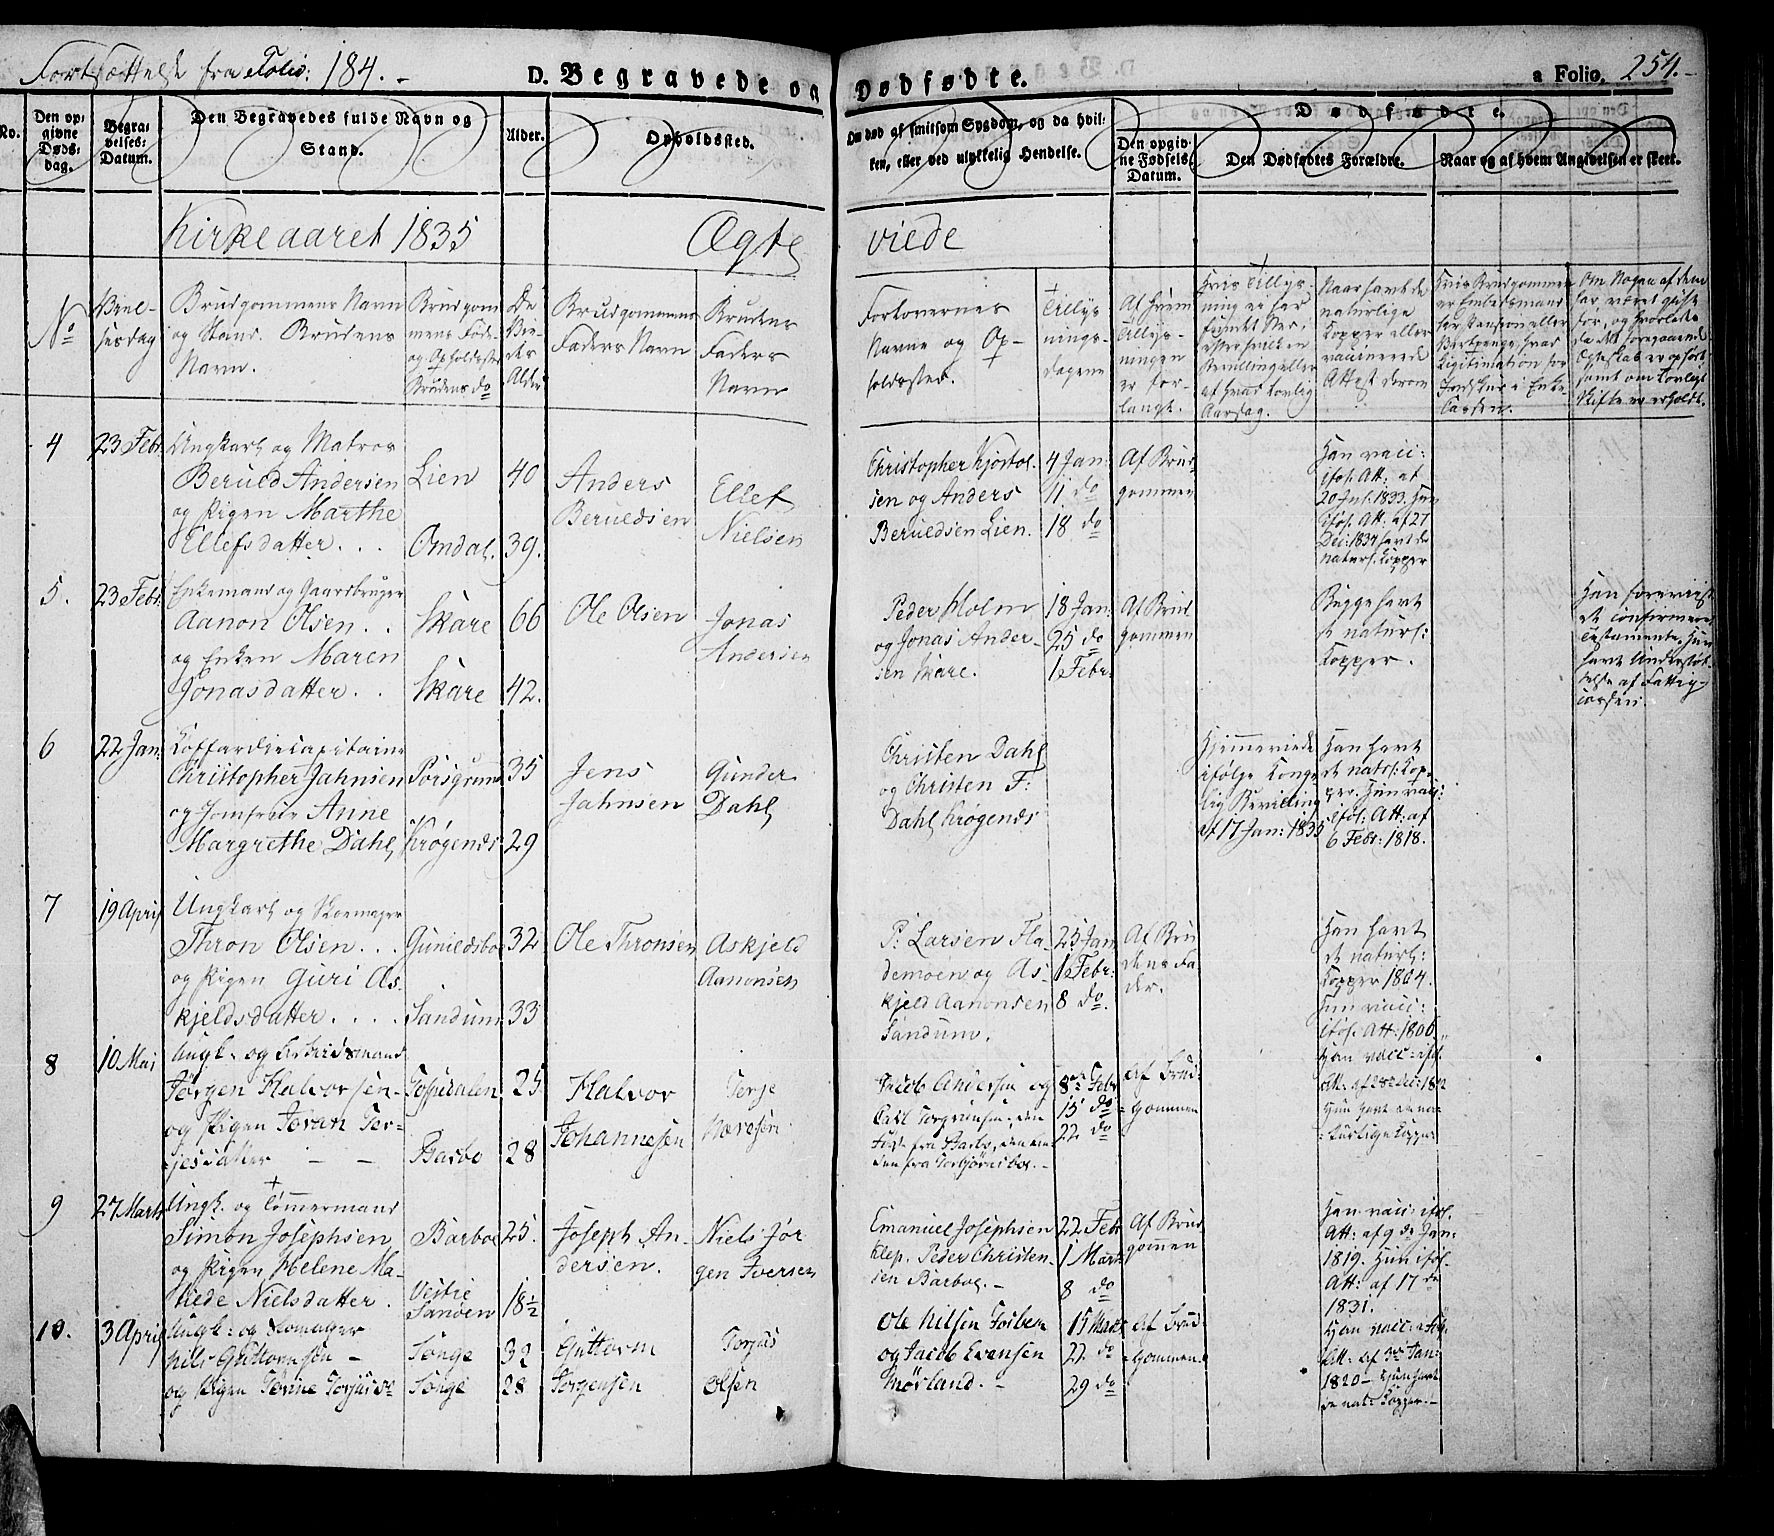 Fortsættelse fra Folio: 184.-
D. Begravede og Dødfødte.
a Folio. 254.-
No.
Den op-
givne
Døds-
dag.
Begra-
velses-
Datum.
Den Begravedes fulde Navn og
Stand.
Alder.
Opholdssted.
Om død af smitsom Sygdom, og da hvil-
ken, eller ved ulykkelig Hendelse.
Dødfødte.
Den opgiv-
ne Fødsels-
Datum.
Den Dødfødtes Forældre.
Naar og af hvem Angivelsen er skeet.
Kirkeaaret 1835
Ægte viede
No
Viel-
sesdag
Brudgommens Navn
og Stand. Brudens
Navn.
Brudgom
mens Føde
og Opholdssted
Brudens do
De
Vie-
des
Alder
Brudgommens
Faders Navn
Brudens
Faders
Navn
Forlovernes
Navne og Op-
holdssted.
Tillys
nings-
dagene
Af hvem
Tillys-
ningen
er for-
langt.
Hvis Tillys-
ning ei har
fundet Sted,
efter hvilken
Bevilling eller
af hvad lovlig
Aarsag.
Naar havt de
naturlige
Kopper eller
vaccinerede
Attest derom
Hvis Brudgommen
er Embedsmand
for Pension eller
Legitimation for
Indskud i Enke-
Cassen.
Om Nogen af dem
har været gift
før, og hvorledes
da det foregaaende
Ægteskab er ophørt
samt om lovligt
Skifte er erholdt.
4
23 Febr.
Ungkarl og Matros
Beruld Andersen
og Pigen Marthe
Ellefsdatter . . .
Lien
Omdal.
40
39.
Anders
Beruldsen
Ellef
Nielsen
Christopher Kjøstol-
sen og Anders
Beruldsen Lien.
4 Jan:
11 do
18 do
Af Brud
gommen
Han vacc:
iføl. Att: af
20 Jul. 1833. Hun
iføl. Att. af 27
Dec: 1834 havt de
naturl. Kopper
5.
23 Febr.
Enkemand og Gaardbruger
Aanon Olsen . .
og Enken Maren
Jonasdatter . .
Skare
Skare
66
42.
Ole Olsen
Jonas
Andersen
Peder Holm
og Jonas Ander-
sen Skare.
18 Jan:
25 do
1 Febr:
Af Brud
gommen
Begge havt
de naturl:
Kopper.
Han foreviist
et confirmeret
Testamente. Hun
havt Understøt-
telse af Fattig-
cassen.
6
22 Jan:
Koffardiecapitaine
Christopher Jahnsen
og Jomfrue Anne
Margrethe Dahl,
Porsgrund
Krøgenes
35
29
Jens
Jahnsen
Gunder
Dahl
Christen Dahl
og Christen F:
Dahl Krøgenes
Hjemmeviede
ifølge Konge
lig Bevilling
af 17 Jan: 1835
Han havt
de natrl: Kop-
per. Hun vacc:
iføl: Att: af
6 Febr: 1818.
7
19 April
Ungkarl og Skomager
Thron Olsen . . .
og Pigen Guri As-
kjeldsdatter . . . .
Gunildsboe
Sandum
32
33
Ole Thronsen
Askjeld
Aanonsen
P: Larsen Fla-
demoen og As-
kjeld Aanonsen
Sandum.
25 Jan
1 Febr:
8 do.
Af Bru
dens Fa-
der.
Han havt
de naturl:
Kopper 1804.
Hun vacc:
iføl. Att: 1806.
8
10 Mai
Ungk: og Arbeidsmand
Jørgen Halvorsen-
og Pigen Joran Ter-
jesdatter — —
Barbo
25
28
Halvor
Johannesen
Terje
Jacob Andersen og
den
første fra Barbo, den an-
den fra Torbjørnsboe.-
8de Febr
15 do
22 do
af Brud-
gommen
Han vacc: iføl.
Att. af 28 Dec: 1812
Hun havt de na-
turlige Kopper
9
27 Marts
Ungk. og Tømmermand
Simon Josephsen
og Pigen Helene Ma-
thede Nielsdatter.
Barboe
Vestre
Sandøen
25.
18½
Joseph An-
dersen.
Niels Jør
gen Iversen
Emanuel Josephsen
Klep. Peder Christen-
sen Barboe.-
22 Febr
1 Marts
8 do
Af Brud
gommen
Han vacc: iføl.
Att: af 9 de Jan:
1819. Hun iføl.
Att: af 17 de
1831.
10.
3 April
Ungk: og Skomager
Nils Guttormsen -
og Pigen Terine Torjusd.
Songe
Songe
32
28
Guttorm
Torgensen
Torjus
Olsen
Ole Nilsen
og Jacob Evensen
Mørland. -
15 Marts
22 do
29 do
af Brud-
gommen.
Han vacc: iføl.
Att: af 3de Jan:
1820 - Hun havt
de nat: Kopper.-